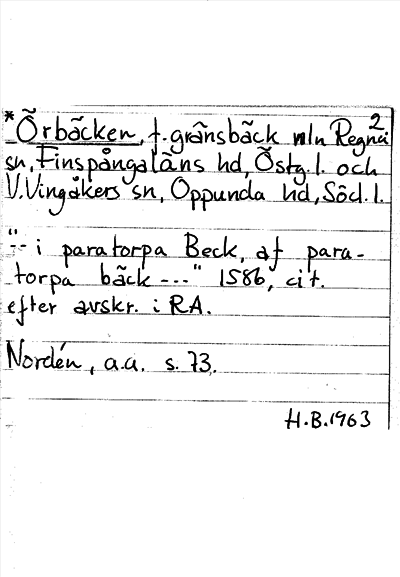 2
*Örbäcken, f. gränsbäck mln Regna
sn, Finspångaläns hd, Östg.l. och
V.Vingåkers sn, Oppunda hd, Södl.
"-- i paratorpa Beck, af para-
torpa bäck ---" 1586, cit.
efter avskr. i RA.
Nordén, a.a. s. 73.
H.B.1963